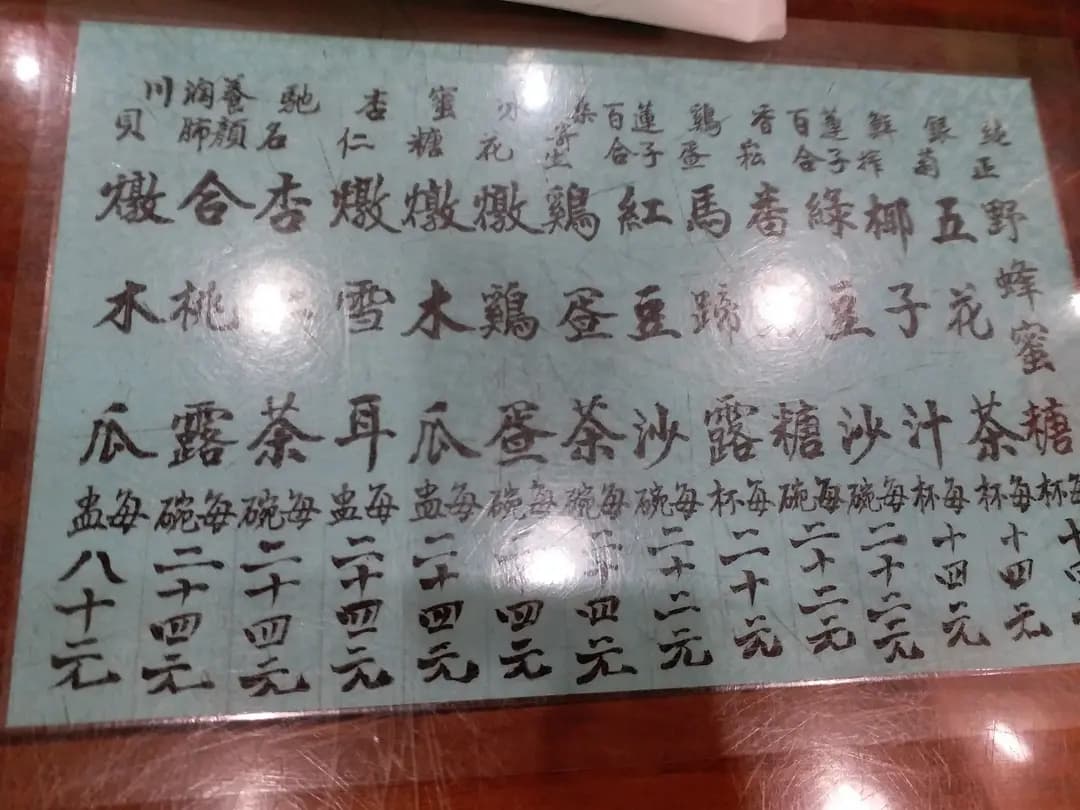 純正野蜂蜜糖每杯十四
銀菊五花茶每杯十四元
鮮榨椰子汁每杯十四元
蓮子百合綠豆沙每碗二十二元
香崧番糖每碗二十二元
鷄蛋馬蹄露每杯二十元
蓮子百合紅豆沙每碗二十二元
桑寄生鷄蛋茶每碗二十四元
花燉鷄蛋每碗二十四元
蜜糖燉木瓜每盅二十四元
杏仁燉雪耳每盅二十四元
馳名杏茶每碗二十四元
養顏潤肺合桃露每碗二十四元
川貝燉木瓜每盅八十元